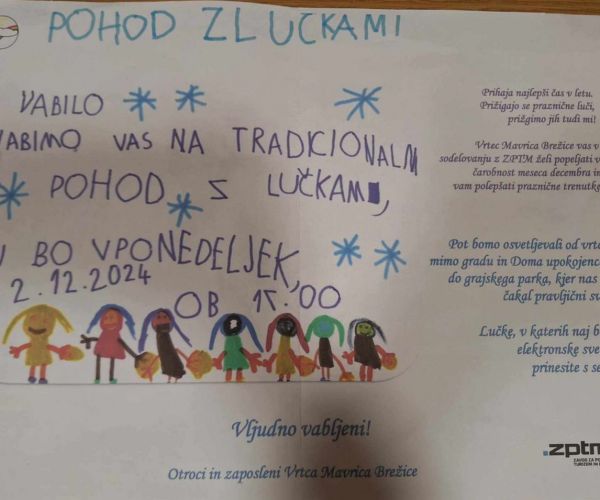 POHOD Z LUČKAMI
VABILO
VABIMO VAS NA TRADICIONALNI
POHOD S LUČKAMI,
BO V PONEDELJEK,
2.12.2024
OB 17.00
Prihaja najlepši čas v letu.
Prižigajo se praznične luči,
prižgimo jih tudi mi!
Vrtec Mavrica Brežice vas v
sodelovanju z ZPTM želi popeljati v
čarobnost meseca decembra in
vam polepšati praznične trenutke
Pot bomo osvetljevali od vrtc
mimo gradu in Doma upokojenc
do grajskega parka, kjer nas
čakal pravljični sv
Lučke, v katerih naj b
elektronske sve
prinesite s se
Vljudno vabljeni!
Otroci in zaposleni Vrtca Mavrica Brežice
.zptm
ZAVOD ZA PO
TURIZEM IN